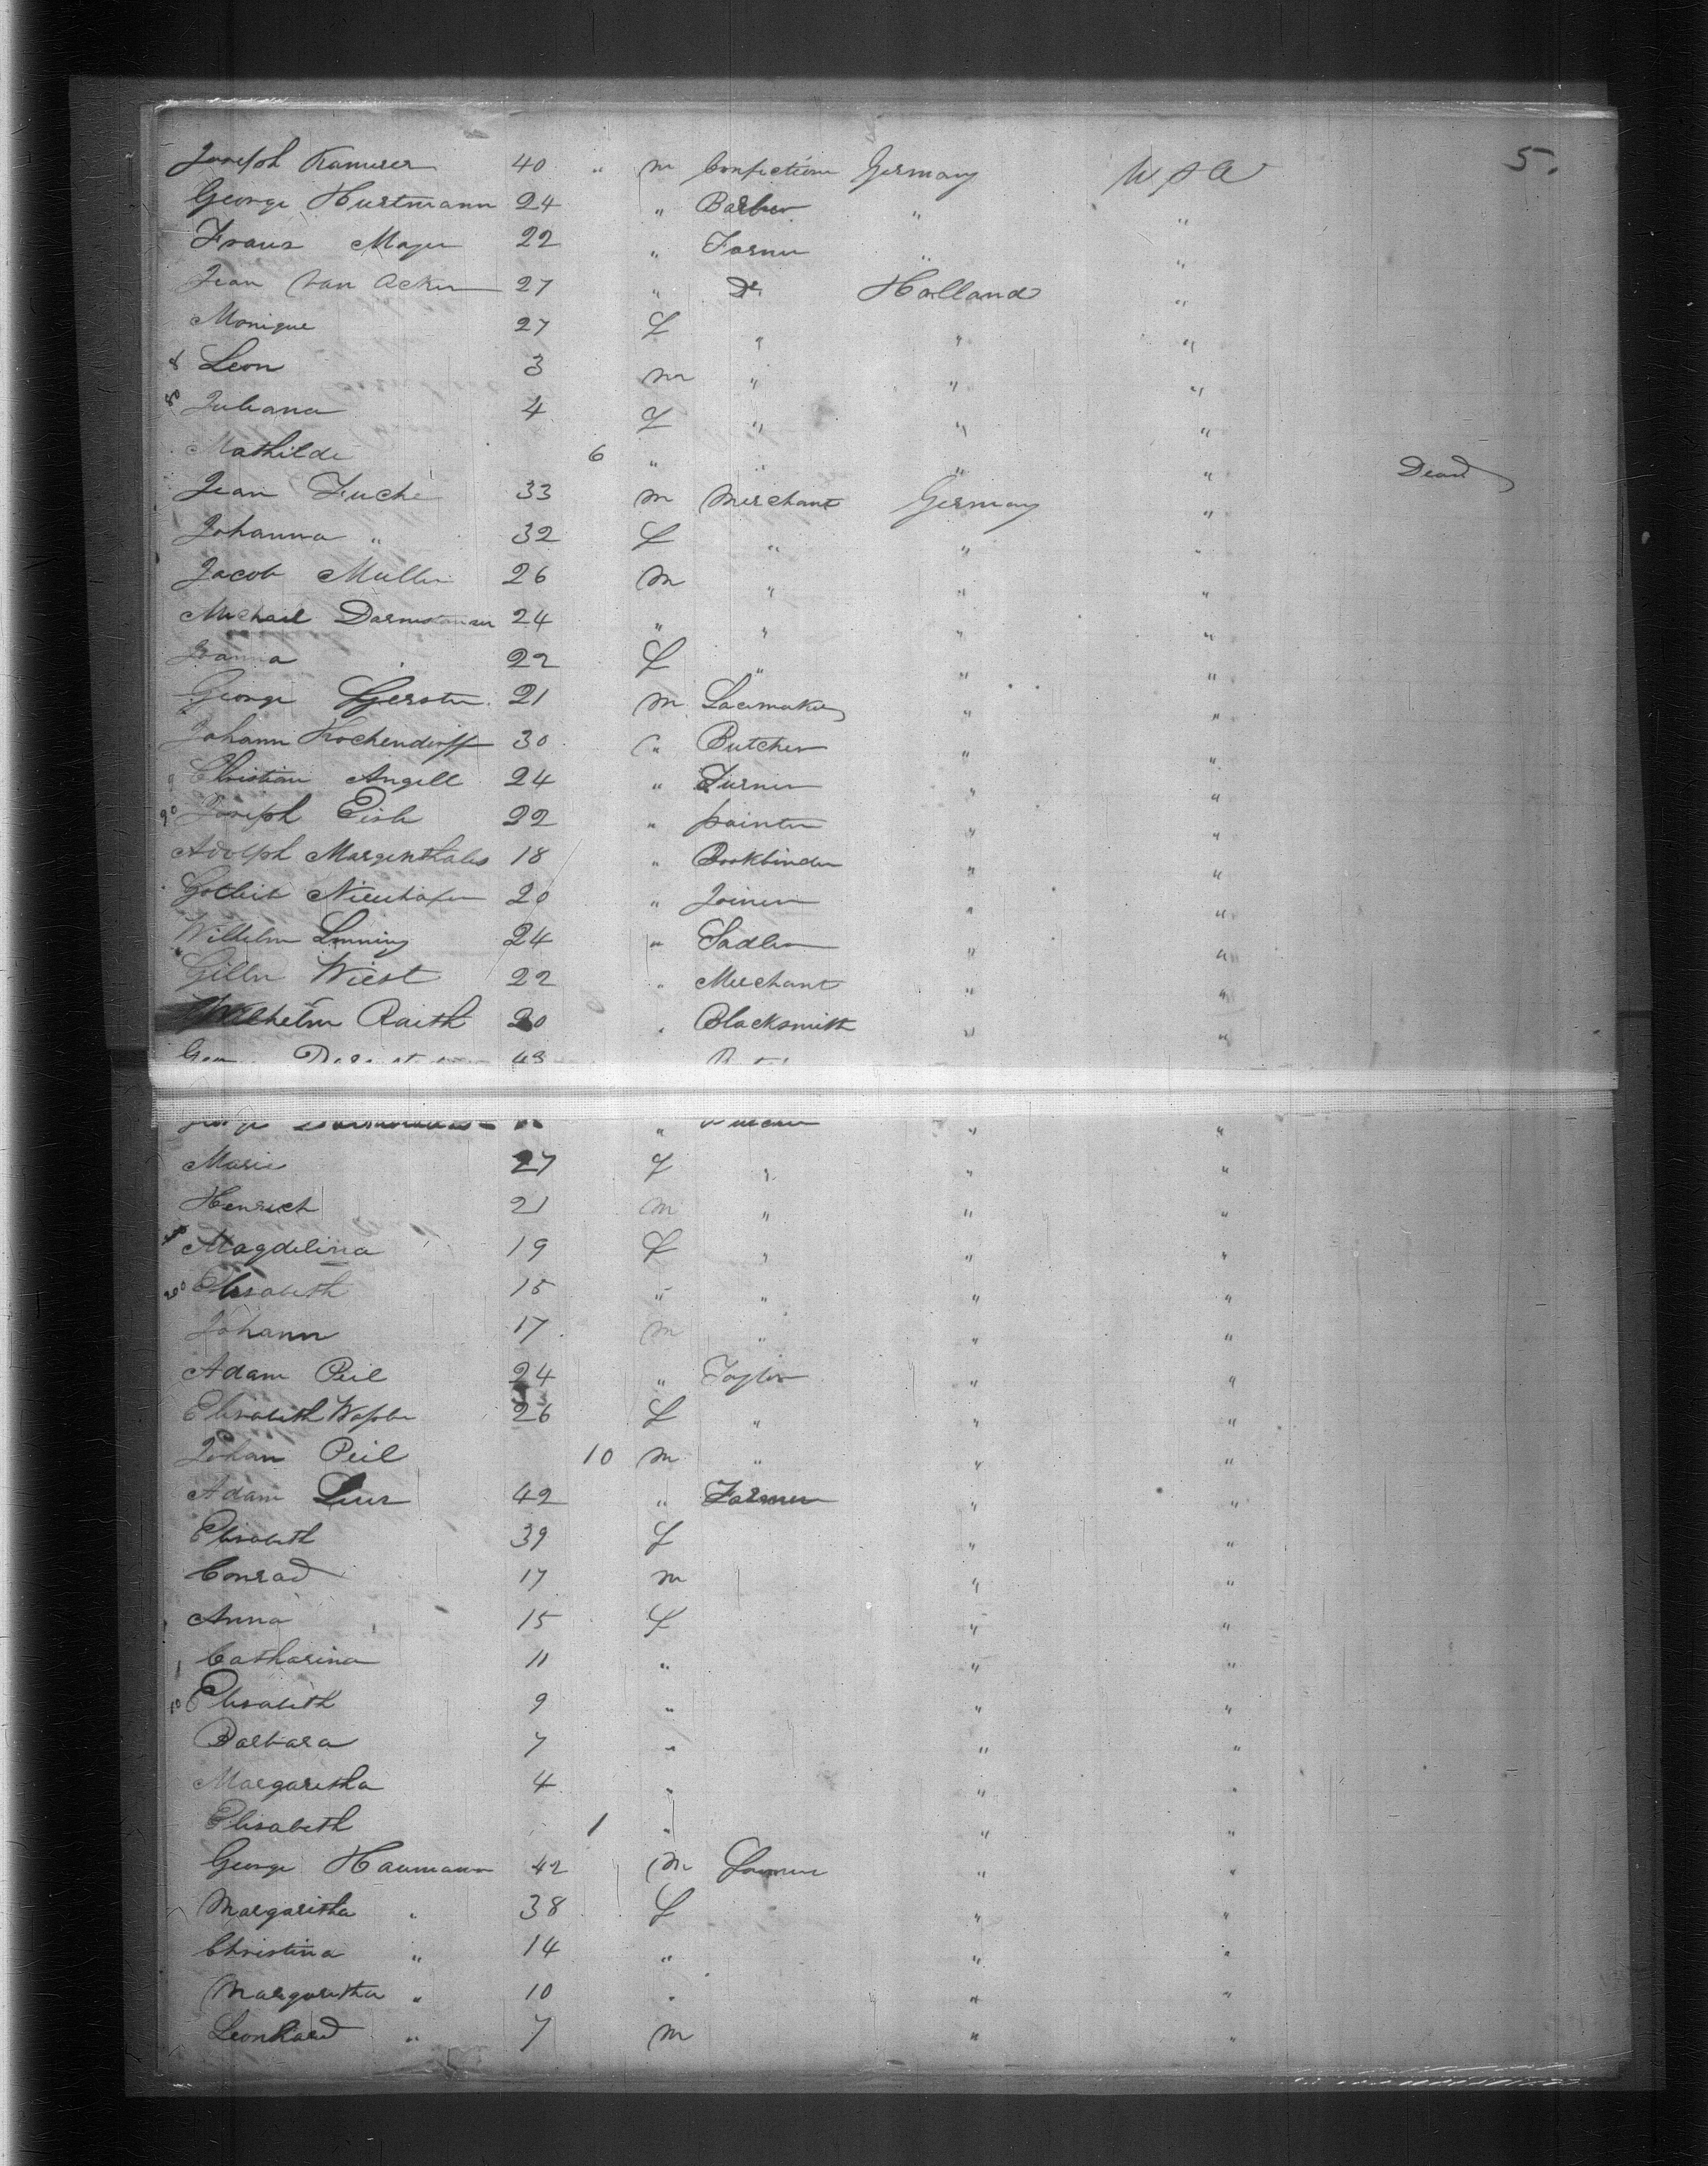 5.
Joseph Kamerer 40 " m Confection Germany U S A
George Hurtmann 24 " Barber " "
Franz Mayer 22 " Farmer " "
Jean Van Acker 27 " Do Holland "
Monique 27 f " " "
Leon 3 m " " "
Juliana 4 f " " "
Mathilde 6 " " " " Dead
Jean Fuchs 33 m Merchant Germany "
Johanna " 32 f " " "
Jacob Muller 26 m " " "
Michael 24 " " " "
Joanna 22 f " " "
George Gerster 21 m Lacemaker " "
Johann Kochendorff 30 " Butcher " "
Christian Angell 24 " Turner " "
90 Joseph 22 " painter " "
Adolph Margenthaler 18 " Bookbinder " "
Gotleib 20 " Joiner " "
Wilhelm 24 " Sadler " "
Wiest 22 " Merchant " "
Wilhelm Raith 20 " Blacksmith " "
43
George " " "
Marie 27 f " " "
Henrich 21 m " " "
Magdelina 19 f " " "
Elisabeth 15 " " " "
Johann 17 m " " "
Adam Peil 24 " Taylor " "
Elisabeth 26 f " " "
Johan Peil 10 m " " "
Adam 42 " Farmer " "
Elisabeth 39 f " "
Conrad 17 m " "
Anna 15 f " "
Catharina 11 " " "
Elisabeth 9 " " "
Barbara 7 " " "
Margaretha 4 " " "
Elisabeth 1 " " "
George Haumann 42 m Farmer " "
Margaritha " 38 f " "
Christina " 14 " " "
Margaretha " 10 " " "
Leonhard " 7 m " "